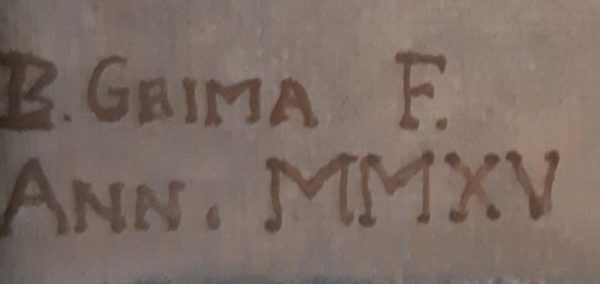 B. GRIMA F.
ANN. MMXV